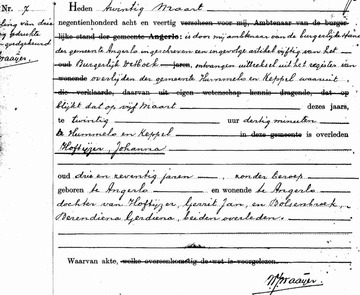 Nr. 7
Heden twintig Maart
negentienhonderd acht en veertig verscheen voor mij, Ambtenaar van de burger-
lijke stand der gemeente Angerlo: is door mij ambtenaar van de burgerlijke stand
der gemeente Angerlo ingeschreven een ingevolge artikel vijftig van het
oud Burgerlijk Wetboek jaren, ontvangen uittreksel uit het register van
wonende overlijden der gemeente Hummelo en Keppel waaruit
die verklaarde, daarvan uit eigen wetenschap kennis dragende, dat op
blijkt dat op vijf Maart dezes jaars,
te twintig uur dertig minuten
te Hummelo en Keppel in deze gemeente is overleden
Hoftijzer, Johanna
oud drie en zeventig jaren, zonder beroep
geboren te Angerlo en wonende te Angerlo
dochter van Hoftijzer, Gerrit Jan, en Bolsenbroek,
Berendiena Gerdiena, beiden overleden.
Waarvan akte, welke overeenkomstig de wet is voorgelezen.